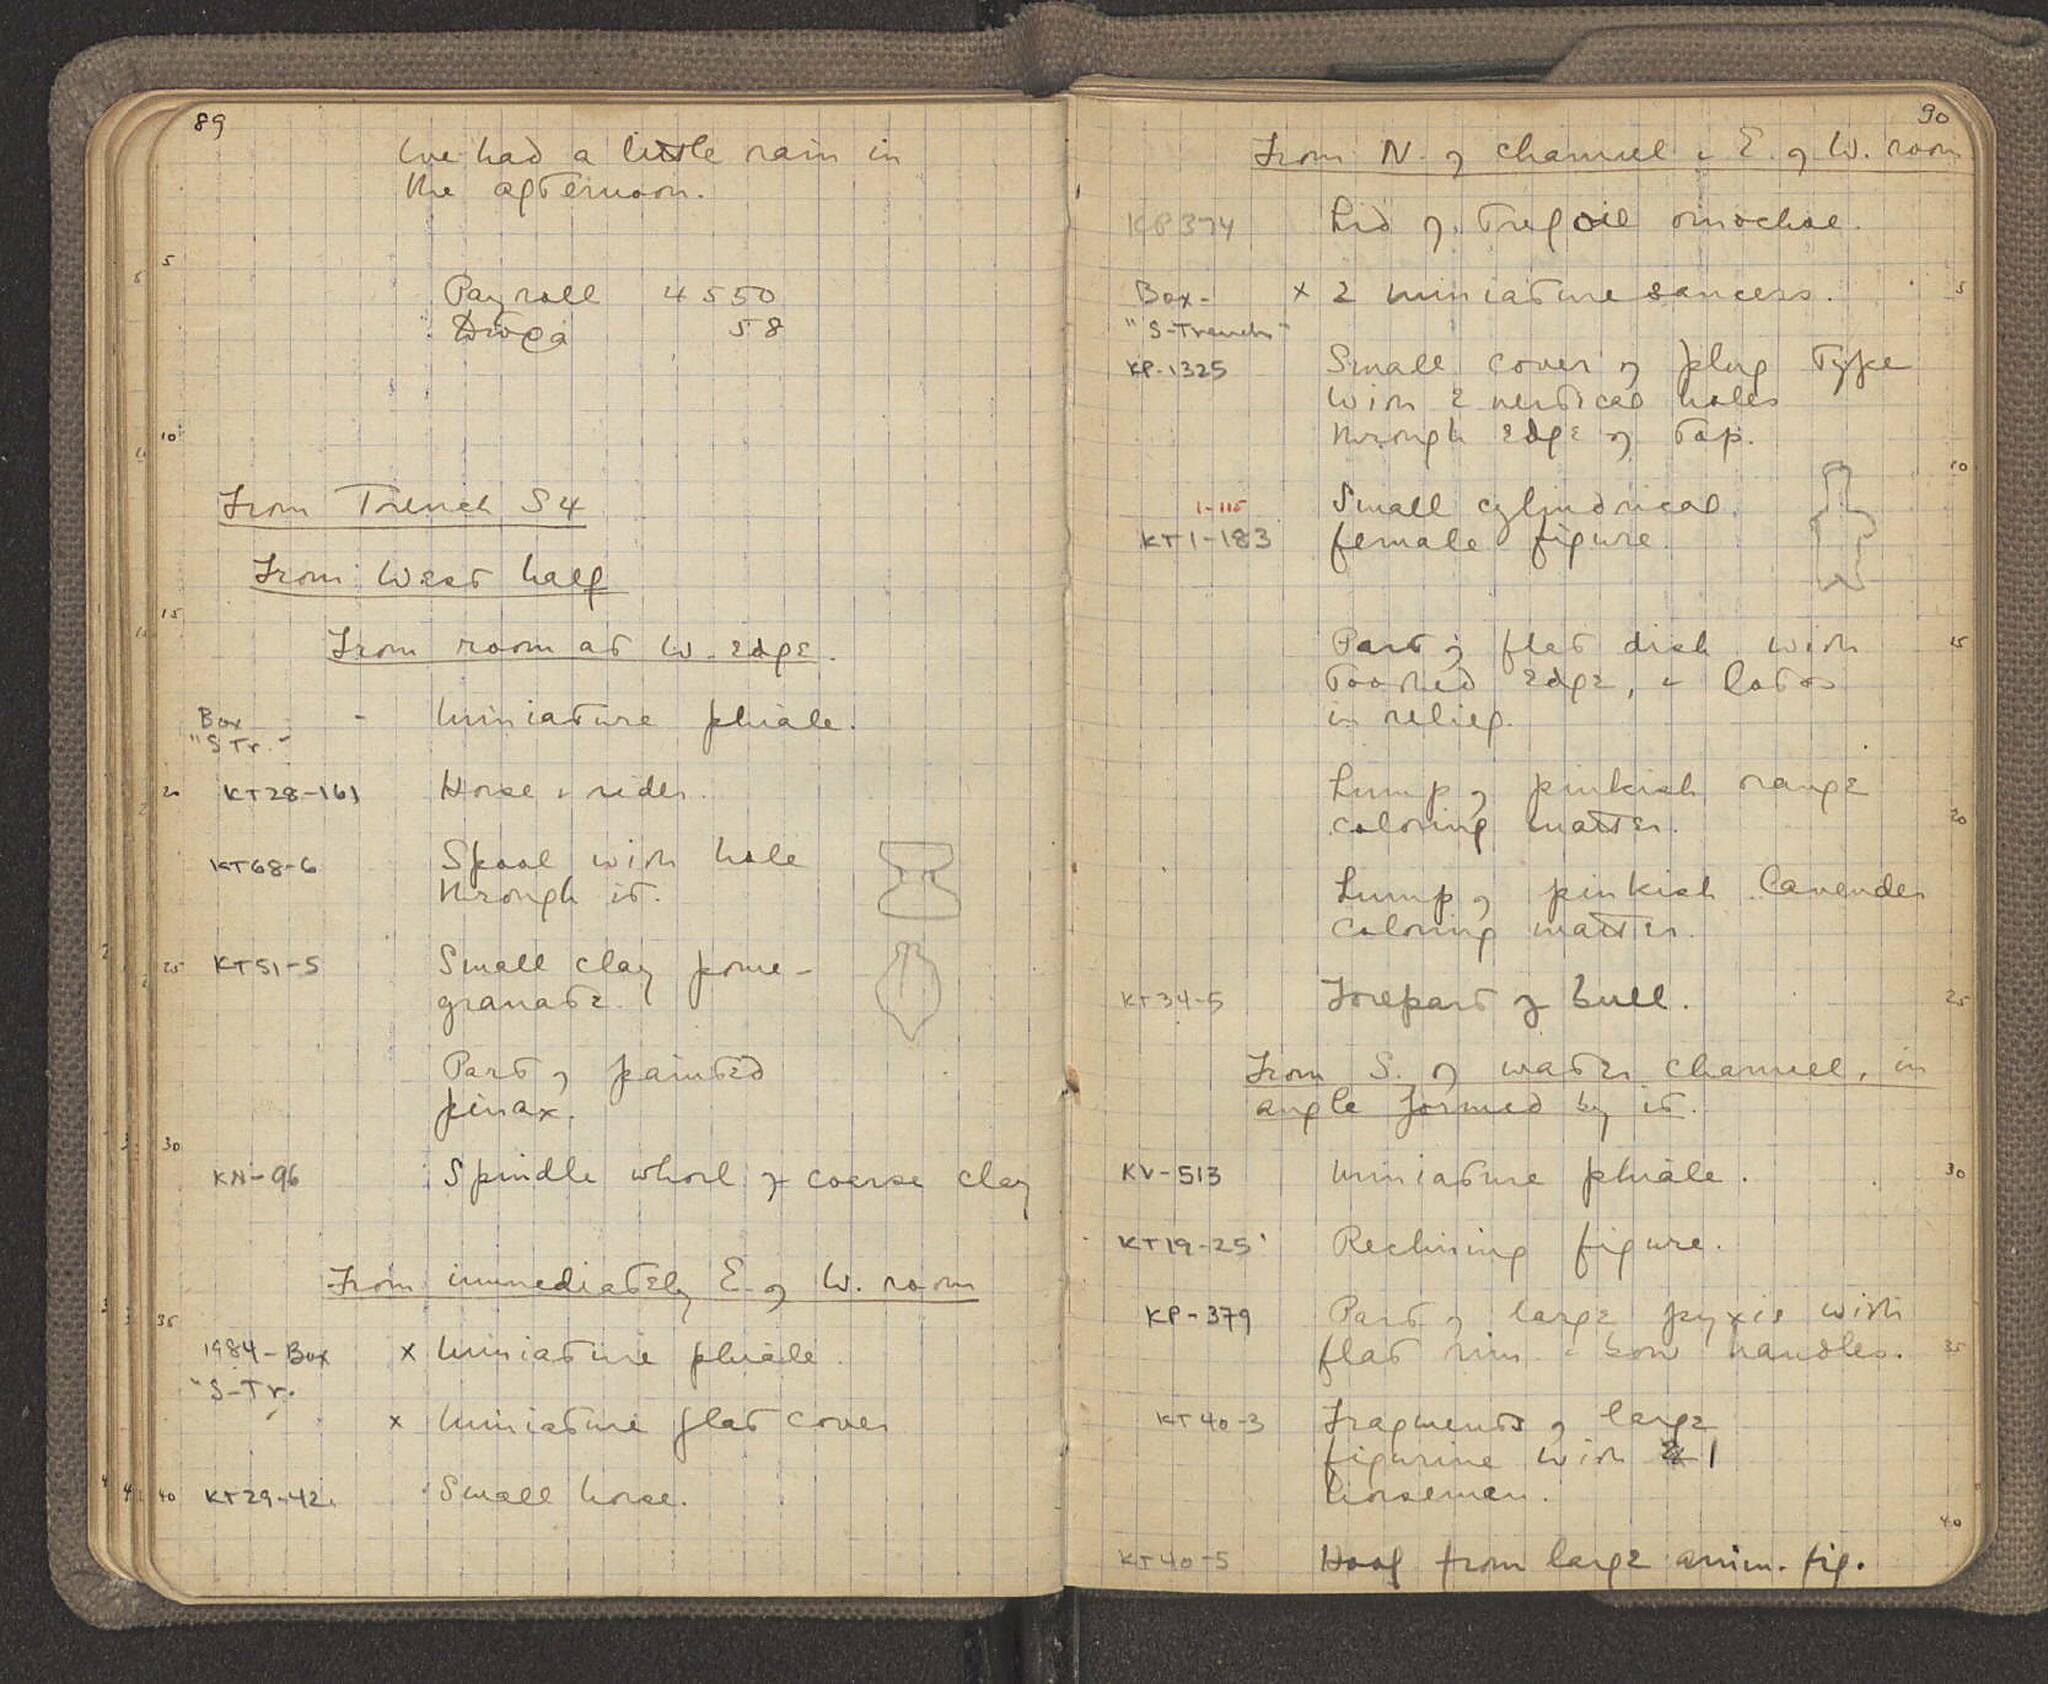 89
We had a little rain in
the afternoon.
5
Payroll 4550
58
10
From Trench S4
From West half
15
From room at W. edge.
Box
"S Tr."
- Miniature phiale.
20 KT28-161 Horse & rider.
KT68-6 Spool with hole
through it.
25 KT51-5 Small clay pome-
granate
Part of painted
pinax.
30
KN-96 Spindle whorl of coarse clay
From immediately E. of W. room
35
1984-Box x Miniature phiale.
"S-Tr.
x Miniature flat cover
40 KT29-42 Small horse.
90
From N. of channel & E. of W. room
KP374 Lid of trefoil oinochoe.
Box- x 2 miniature saucers. 5
"S-Trench"
KP-1325 Small cover of plug type
with 2 vertical holes
through edge of top.
10
1-115 Small cylindrical
KT1-183 female figure.
Part of flat dish with 15
toothed edge, & lotos
in relief.
Lump of pinkish orange
coloring matter. 20
Lump of pinkish lavender
coloring matter.
KT34-5 Forepart of bull. 25
From S. of water channel, in
angle formed by it.
KV-513 Miniature phiale. 30
KT19-25 Reclining figure.
KP-379 Part of large pyxis with
flat rim & bow handles. 35
KT40-3 Fragments of large
figurine with 1
horseman.
40
KT40-5 Hoof from large anim. fig.